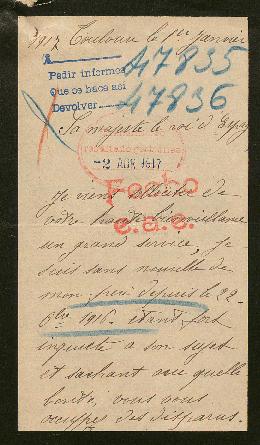 1917 Toulouse le 1er Janvier
47835
Pedir informes
Que se hace así
Devolver
47836
Sa majeste le roi d'Espag
2 ABR 1917
Fecho
e.a.e.
Je viens solliciter de
votre haute bienveillance
un grand service, je
suis sans nouvelle de
mon depuis le 22
6bre 1916 étant fort
inquiete a son sujet
et sachant avec quelle
bonté, vous vous
occuppes des disparus.